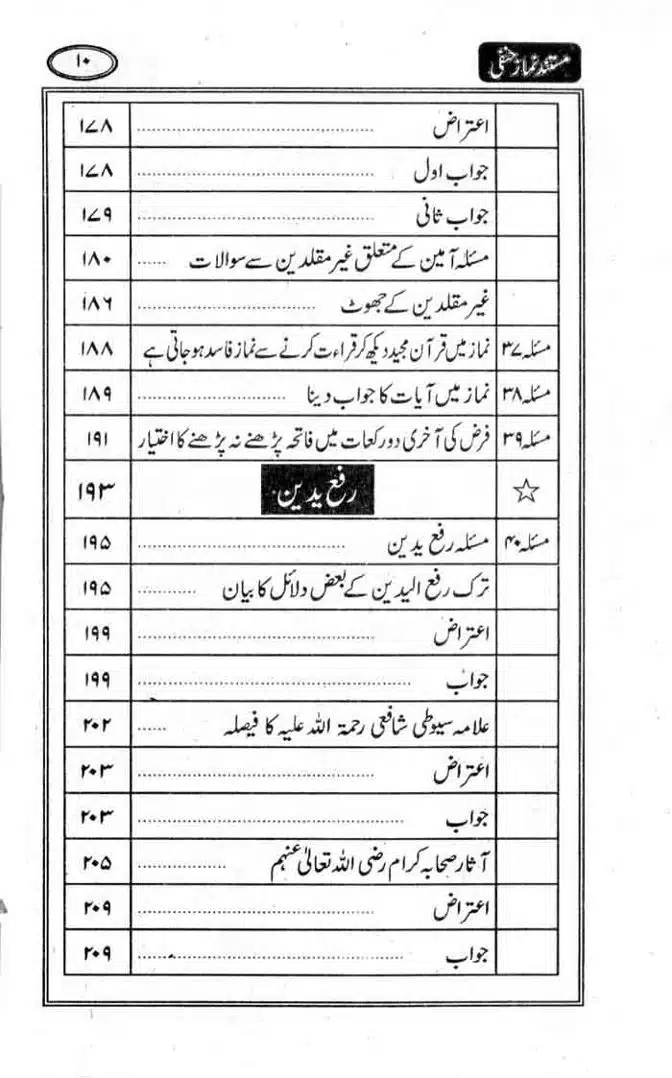 مستند نماز حنفی ۱۰
اعتراض ........ ۱۷۸
جواب اول ........ ۱۷۸
جواب ثانی ........ ۱۷۹
مسئلہ آمین کے متعلق غیر مقلدین سے سوالات ...... ۱۸۰
غیر مقلدین کے جھوٹ ........ ۱۸۶
مسئلہ ۳۷ نماز میں قرآن مجید دیکھ کر قراءت کرنے سے نماز فاسد ہو جاتی ہے ۱۸۸
مسئلہ ۳۸ نماز میں آیات کا جواب دینا ........ ۱۸۹
مسئلہ ۳۹ فرض کی آخری دو رکعات میں فاتحہ پڑھنے نہ پڑھنے کا اختیار ۱۹۱
☆ رفع یدین ۱۹۳
مسئلہ ۴۰ مسئلہ رفع یدین ........ ۱۹۵
ترک رفع الیدین کے بعض دلائل کا بیان ........ ۱۹۵
اعتراض ........ ۱۹۹
جواب ........ ۱۹۹
علامہ سیوطی شافعی رحمۃ اللہ علیہ کا فیصلہ ...... ۲۰۲
اعتراض ........ ۲۰۳
جواب ........ ۲۰۳
آثار صحابہ کرام رضی اللہ تعالیٰ عنہم ........ ۲۰۵
اعتراض ........ ۲۰۹
جواب ........ ۲۰۹